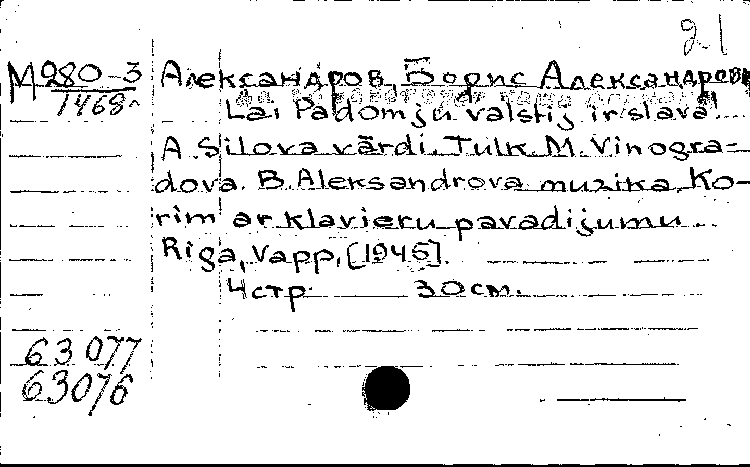 2-1
М280-3
1468
Александров, Борис Александрович
Lai Padomju valstij ir slava!
A. Silova vārdi. Tulk. M. Vinogra-
dova. B. Aleksandrova muzika. Ko-
rim ar klavieru pavadijumu.
Riga, Vapp, [1945].
4 стр. 30 см.
63077
63076